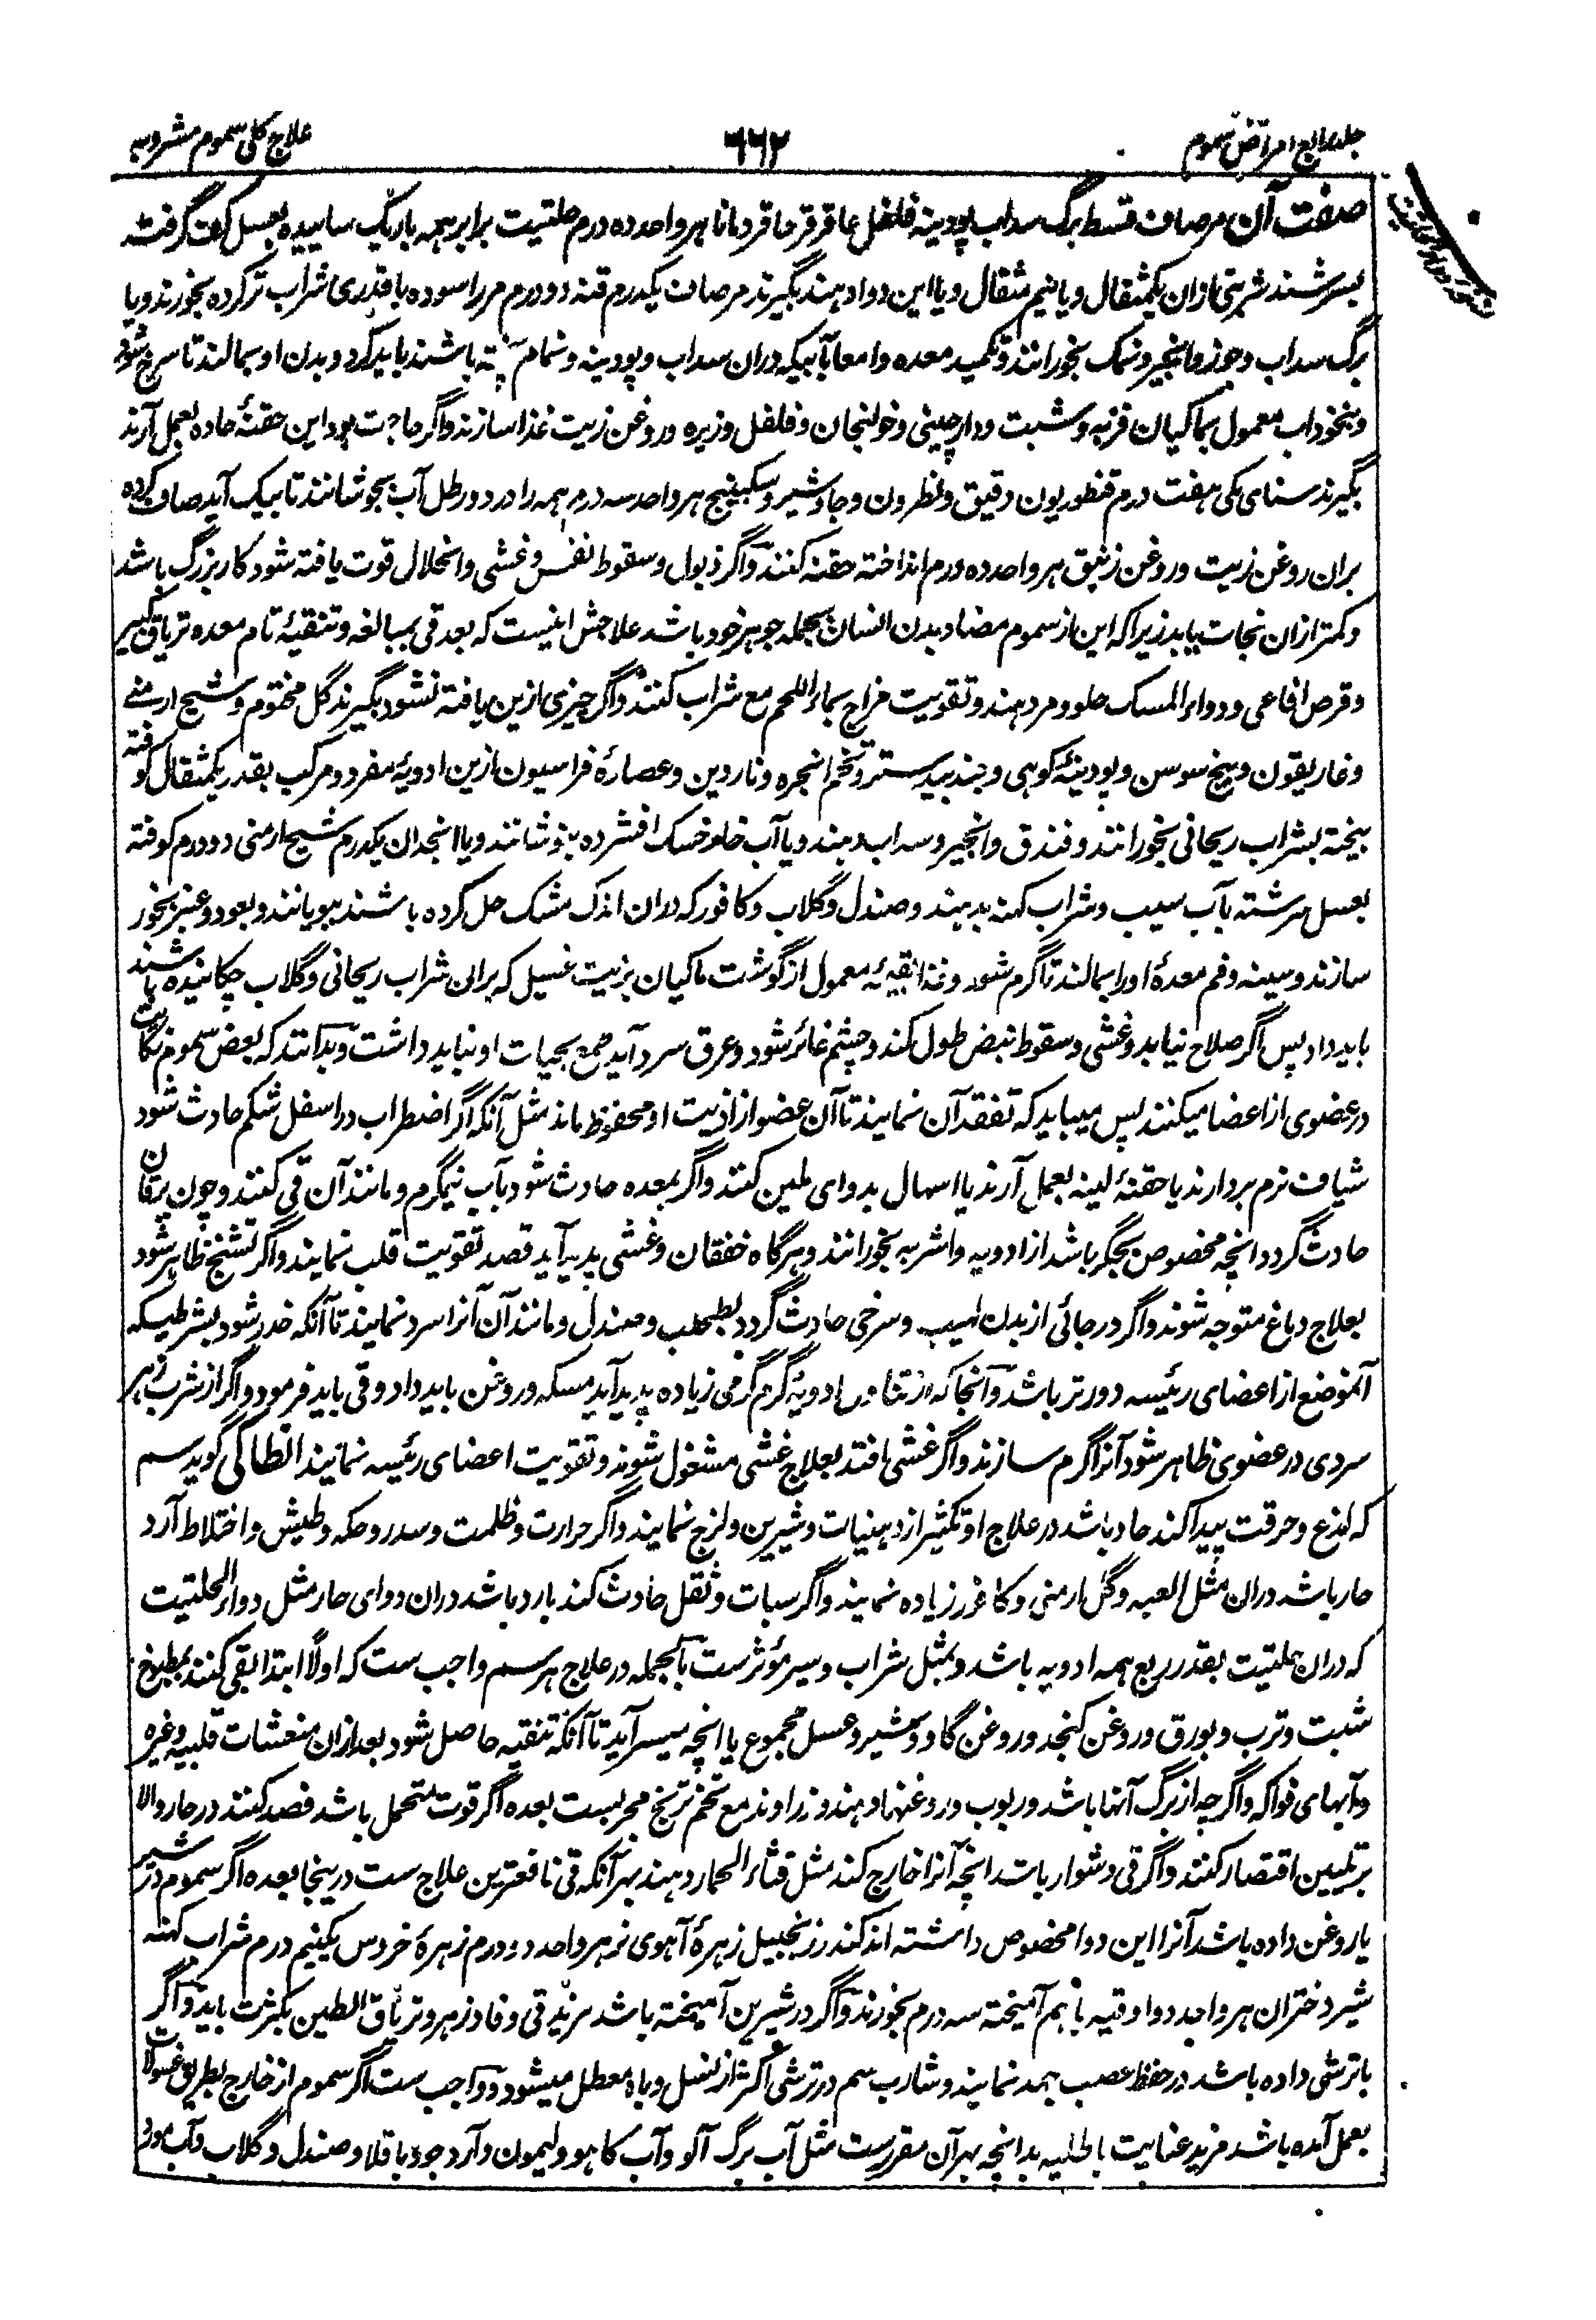 جلد رابع امراض سموم
۶۶۲
علاج کلی سموم مشروبه
صفت آن مر صاف قسط برگ سداب پودینه فلفل عاقرقرحا قردمانا هر واحد ده درم حلتیت برابر همه باریک ساییده بعسل کف گرفته
بسرشند شربتی ازان یکمثقال و یا نیم مثقال و یا این دوا دهند بگیرند مر صاف یکدرم قنه دو درم مر را سوده با قدری شراب تر کرده بخورند و یا
برگ سداب و جوز و انجیر و نمک بخورانند و تکمید معده و امعا بآبیکه دران سداب و پودینه و نمام پخته باشند باید کرد و بدن او بمالند تا سرخ شود
و بنخوداب معمول بماکیان فربه و شبت و دارچینی و خولنجان و فلفل و زیره و روغن زیت غذا سازند و اگر حاجت بود این حقنهٔ حاده بعمل آرند
بگیرند سنای مکی هفت درم قنطوریون دقیق و نطرون و جاوشیر و سکبینج هر واحد سه درم همه را در دو رطل آب بجوشانند تا بیک آید صاف کرده
بران روغن زیت و روغن زنبق هر واحد ده درم انداخته حقنه کنند و اگر ذبول و سقوط نفس و غشی و انحلال قوت یافته شود کار بزرگ باشد
و کمتر ازان نجات یابد زیرا که این از سموم مضاد بدن انسان بجمله جوهر خود باشد علاجش اینست که بعد قی بمبالغه و تنقیهٔ تام معده تریاق کبیر
و قرص افاعی و دواء المسک حلو و مر دهند و تقویت مزاج بماء اللحم مع شراب کنند و اگر چیزی ازین یافته نشود بگیرند گل مختوم و شیح ارمنی
و غاریقون و بیخ سوسن و پودینهٔ کوهی و جندبیدستر و تخم انجره و ناردین و عصارهٔ فراسیون ازین ادویهٔ مفرد و مرکب بقدر یکمثقال کوفته
بیخته بشراب ریحانی بخورانند و فندق و انجیر و سداب دهند و یا آب خار خسک افشرده بنوشانند و یا انجدان یکدرم شیح ارمنی دو درم کوفته
بعسل سرشته بآب سیب و شراب کهنه بدهند و صندل و گلاب و کافور که دران اندک مشک حل کرده باشند ببویانند و بعود و عنبر بخور
سازند و سینه و فم معدهٔ او را بمالند تا گرم شود و غذا بقیهٔ معمول از گوشت ماکیان بزیت غسیل که بران شراب ریحانی و گلاب چکانیده باشند
باید داد پس اگر صلاح نیابد و غشی و سقوط نبض طول کند و چشم غائر شود و عرق سرد آید طمع بحیات او نباید داشت و بدانند که بعض سموم نکایت
در عضوی از اعضا میکنند پس میباید که تفقد آن نمایند تا آن عضو از اذیت او محفوظ ماند مثل آنکه اگر اضطراب در اسفل شکم حادث شود
شیاف نرم بردارند یا حقنهٔ لینه بعمل آرند یا اسهال بدوای ملین کنند و اگر بمعده حادث شود بآب نیمگرم و مانند آن قی کنند و چون یرقان
حادث گردد انچه مخصوص بجگر باشد از ادویه و اشربه بخورانند و هرگاه خفقان و غشی پدید آید قصد تقویت قلب نمایند و اگر تشنج ظاهر شود
بعلاج دماغ متوجه شوند و اگر در جائی از بدن لهیب و سرخی حادث گردد بطحلب و صندل و مانند آن آنرا سرد نمایند تا آنکه خدر شود بشرطیکه
آنموضع از اعضای رئیسه دورتر باشد و آنجا که از تناول ادویهٔ گرم گرمی زیاده پدید آید مسکه و روغن باید داد و قی باید فرمود و اگر از شرب زهر
سردی در عضوی ظاهر شود آنرا گرم سازند و اگر غشی افتد بعلاج غشی مشغول شوند و تقویت اعضای رئیسه نمایند انطاکی گوید سم
که لذع و حرقت پیدا کند حاد باشد در علاج او تکثیر از دهنیات و شیرین و لزج نمایند و اگر حرارت و ظلمت و سدر و حکه و طیش و اختلاط آرد
حار باشد دران مثل العبه و گل ارمنی و کافور زیاده نمایند و اگر سبات و ثقل حادث کند بارد باشد دران دوای حار مثل دواء الحلتیت
که دران حلتیت بقدر ربع همه ادویه باشد و بمثل شراب و سیر مؤثرست بالجمله در علاج هر سم واجب ست که اولاً ابتدا بقی کنند بمطبوخ
شبت و ترب و بورق و روغن کنجد و روغن گاو و شیر و عسل مجموع یا انچه میسر آید تا آنکه تنقیه حاصل شود بعد ازان منعشات قلبیه وغیره
و آبهای فواکه و اگرچه از برگ آنها باشد و ربوب و روغنها دهند و زراوند مع تخم ترنج مجربست بعده اگر قوت متحمل باشد فصد کنند در حار والا
بر تلیین اقتصار کنند و اگر قی دشوار باشد انچه آنرا خارج کند مثل قثاء الحمار دهند بهر آنکه قی نافعترین علاج ست درینجا بعده اگر سموم در شیر
یا روغن داده باشد آنرا این دوا مخصوص داشته اند کندر زنجبیل زهرهٔ آهوی نر هر واحد دو درم زهرهٔ خروس یکنیم درم شراب کهنه
شیر دختران هر واحد دو اوقیه باهم آمیخته سه درم بخورند و اگر در شیرین آمیخته باشد مزید قی و فادزهر و تریاق الطین بکثرت باید و اگر
با ترشی داده باشد در حفظ عصب جهد نمایند و شارب سم در ترشی اکثر از نسل و باه معطل میشود و واجب ست اگر سموم از خارج بطریق غسولات
بعمل آمده باشد مزید عنایت باطلیه بدانچه بهر آن مقررست مثل آب برگ آلو و آب کاهو و لیمون و آرد جو و باقلا و صندل و گلاب و آب مورد